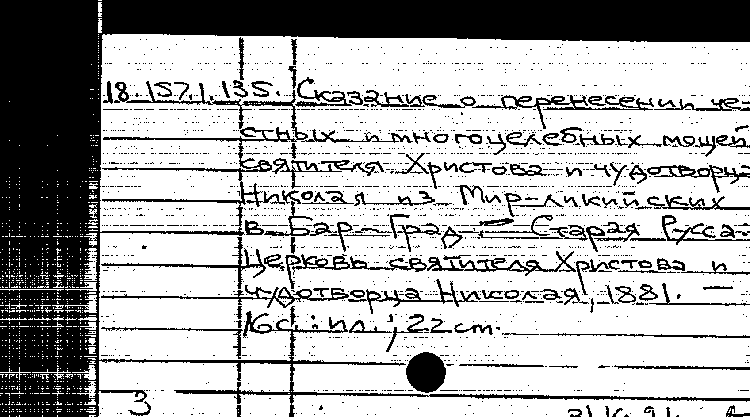 18.157.1.135. Сказание о перенесении че-
стных и многоцелебных мощей
святителя Христова и чудотворца
Николая из Мир-ликийских
в Бар-Град. — Старая Русса:
Церковь святителя Христова и
чудотворца Николая, 1881. —
16с.: ил.; 22см.
3